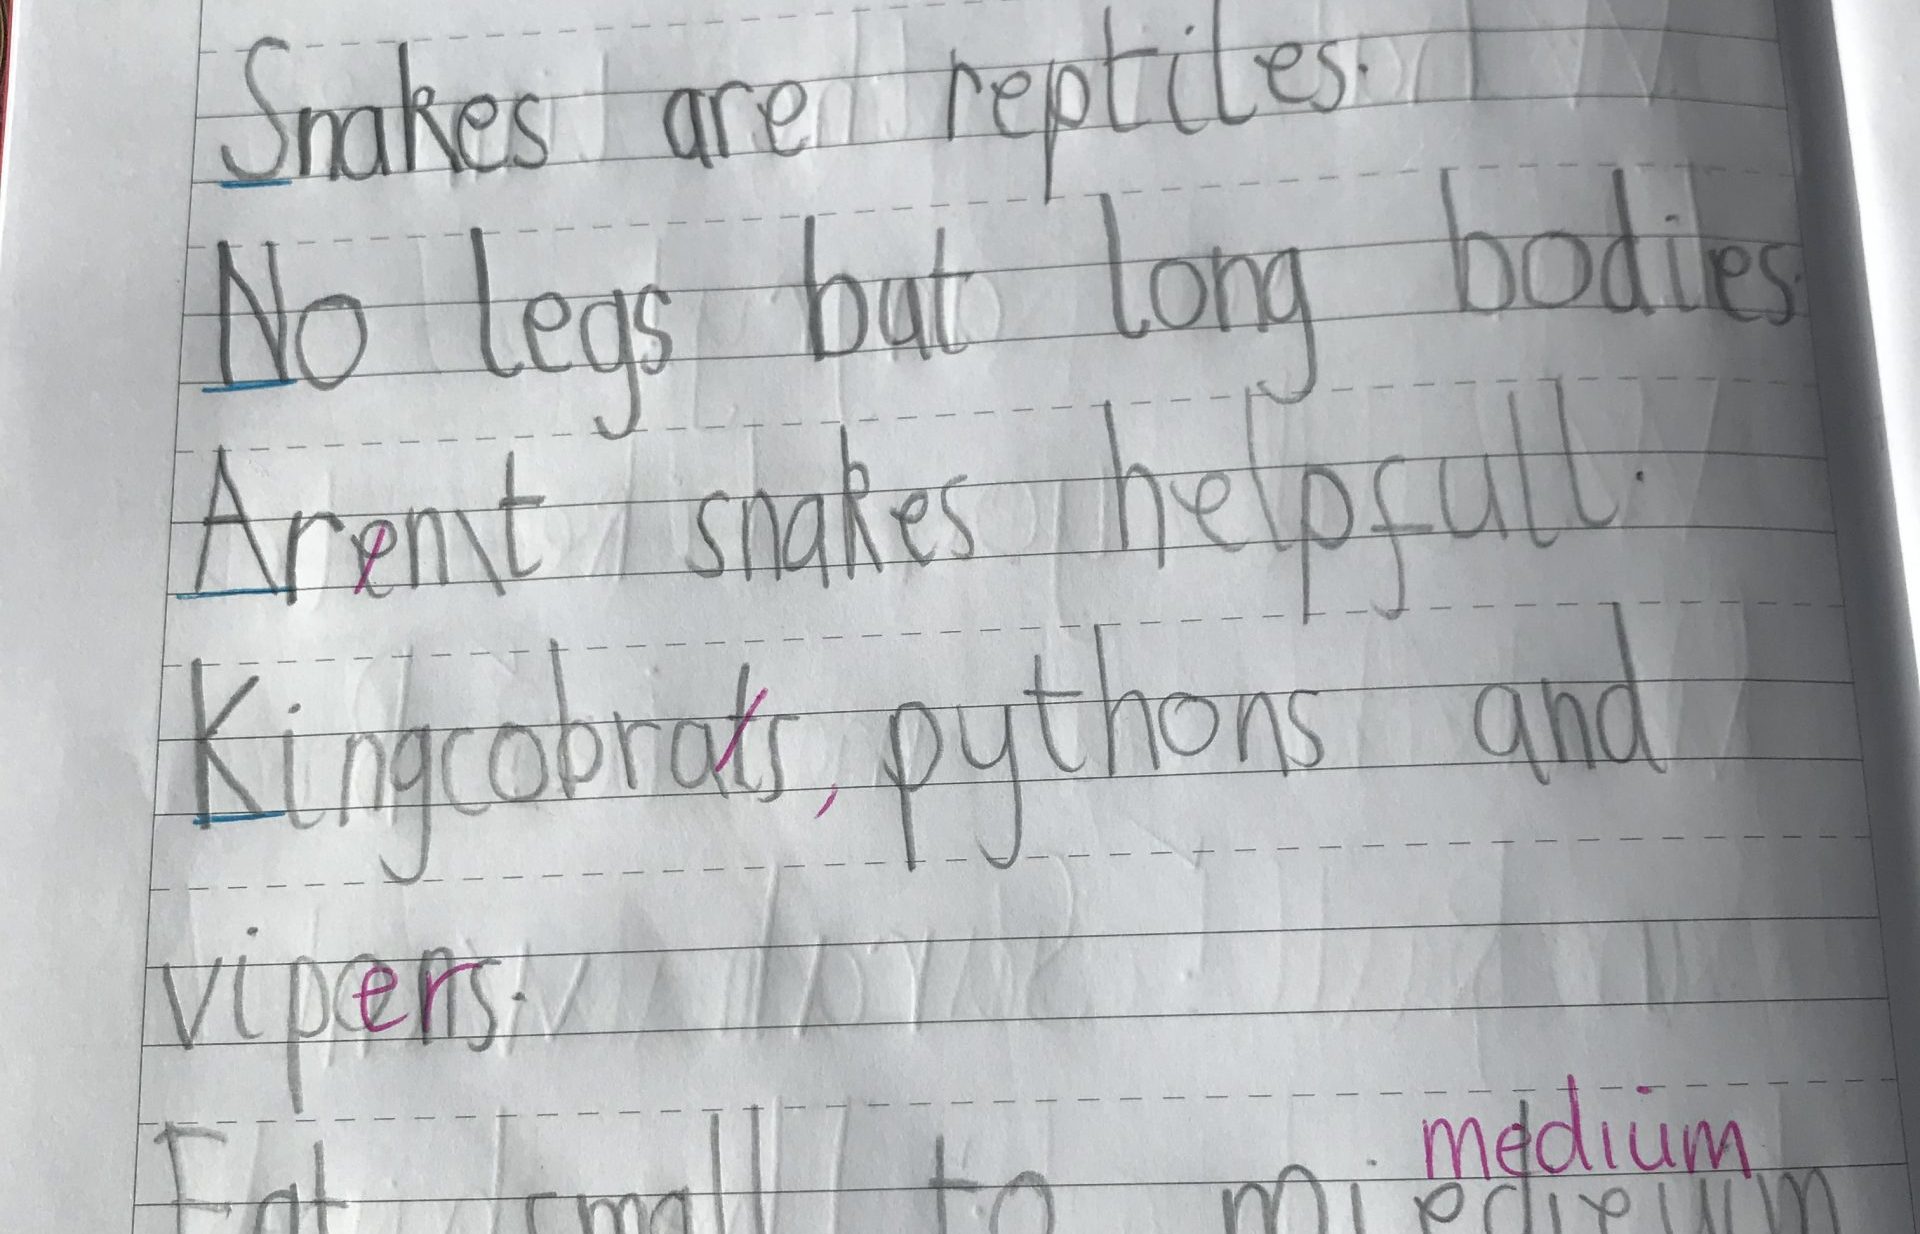 Snakes are reptiles.
No legs but long bodies
Aren't snakes helpfull.
Kingcobrats, pythons and
vipers.
medium
Eat small to miedieium